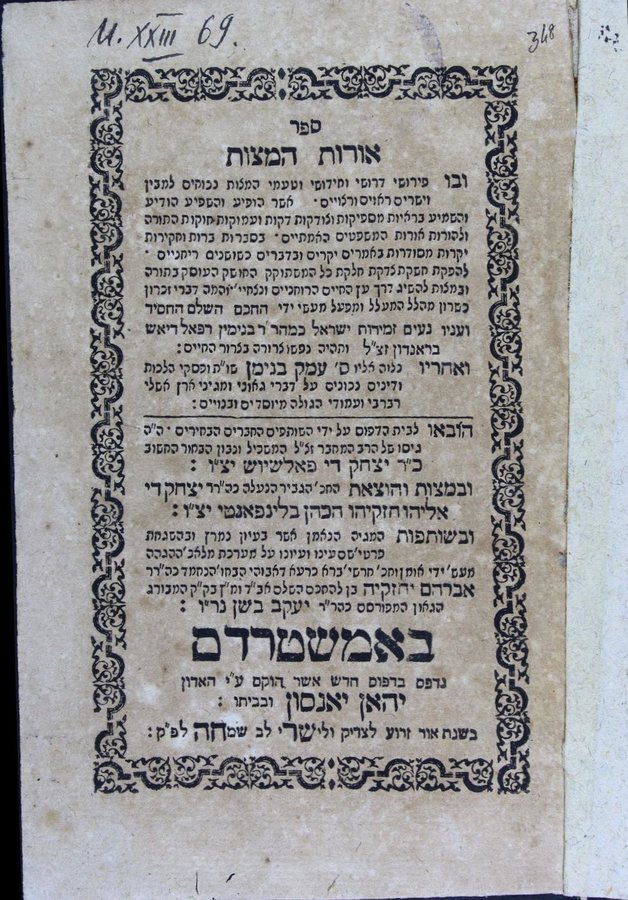 M. XXIII 69.
348
ספר
אורות המצות
ובו פירושי דרושי וחידושי וטעמי המצות נכוחים למבין
וישרים ראוים ורצויים • אשר הופיע והשפיע הודיע
והשמיע בראיות מספיקות וצודקות דקות ועמוקות חוקות התורה
ולהורות אורות המשפטים האמתיים • בסברות ברות וחקירות
יקרות מסודרות באמרים יקרים ובדברים כשושנים ריחניים •
להפקת חשקת צדקת חלקת כל המשתוקק החושק העוסק בתורה
ובמצות להשיג דרך עץ החיים הרוחניים ונצחיי׳ והמה דברי זכרון
כשרון מהלל המעלל ומפעל מעשי ידי החכם השלם החסיד
ועניו נעים זמירות ישראל כמהר״ר בנימין רפאל דיאש
בראנדון זצ״ל ותהיה נפשו צרורה בצרור החיים :
ואחריו נלוה אליו ס׳ עמק בנימן שו״ת ופסקי הלכות
ודינים נכונים על דברי גאוני ומגיני ארץ אשלי
רברבי ועמודי הגולה מיוסדים ובנויים :
הובאו לבית הדפוס על ידי השותפים החברים הבחירים • ה״ה
גיסו של הרב המחבר זצ״ל המשכיל ונבון הבחור החשוב
כ״ר יצחק די פאלשיוש יצ״ו :
ובמצות והוצאת החכ׳ הגביר הנעלה כה״רר יצחק די
אליהו חזקיהו הכהן בלינפאנטי יצ״ו :
ובשותפות המגיה הנאמן אשר בעיון נמרץ ובהשגחת
פרטי שם עינו ועיונו על מערכת מלאכ׳ ההגהה
מעש׳ ידי אומן וחכ׳ חרשי׳ ברא כרעא דאבוהי הבחו׳ הנחמד כה״רר
אברהם יחזקיה בן להחכם השלם אב״ד ומ״ץ בק״ק המבורג
הגאון המפורסם כהר״ר יעקב בשן נר״ו :
באמשטרדם
נדפס בדפוס חדש אשר הוקם ע״י האדון
יהאן יאנסון ובביתו :
בשנת אור זרוע לצדיק ולישרי לב שמחה לפ״ק :